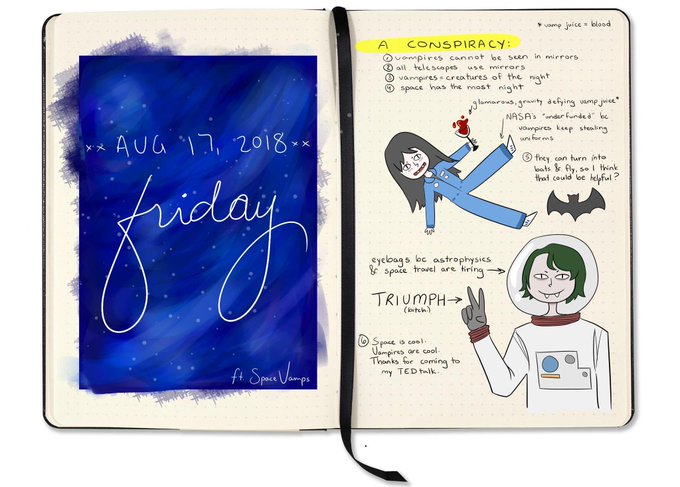 xx AUG 17, 2018 xx
friday
ft. Space Vamps
* vamp juice = blood
A CONSPIRACY:
1 vampires cannot be seen in mirrors
2 all telescopes use mirrors
3 vampires = creatures of the night
4 space has the most night
glamorous, gravity defying vamp juice*
NASA's "underfunded" bc
vampires keep stealing
uniforms
5 they can turn into
bats & fly, so I think
that could be helpful?
eyebags bc astrophysics
& space travel are tiring →
TRIUMPH →
(bitch)
6 Space is cool.
Vampires are cool.
Thanks for coming to
my TED talk.